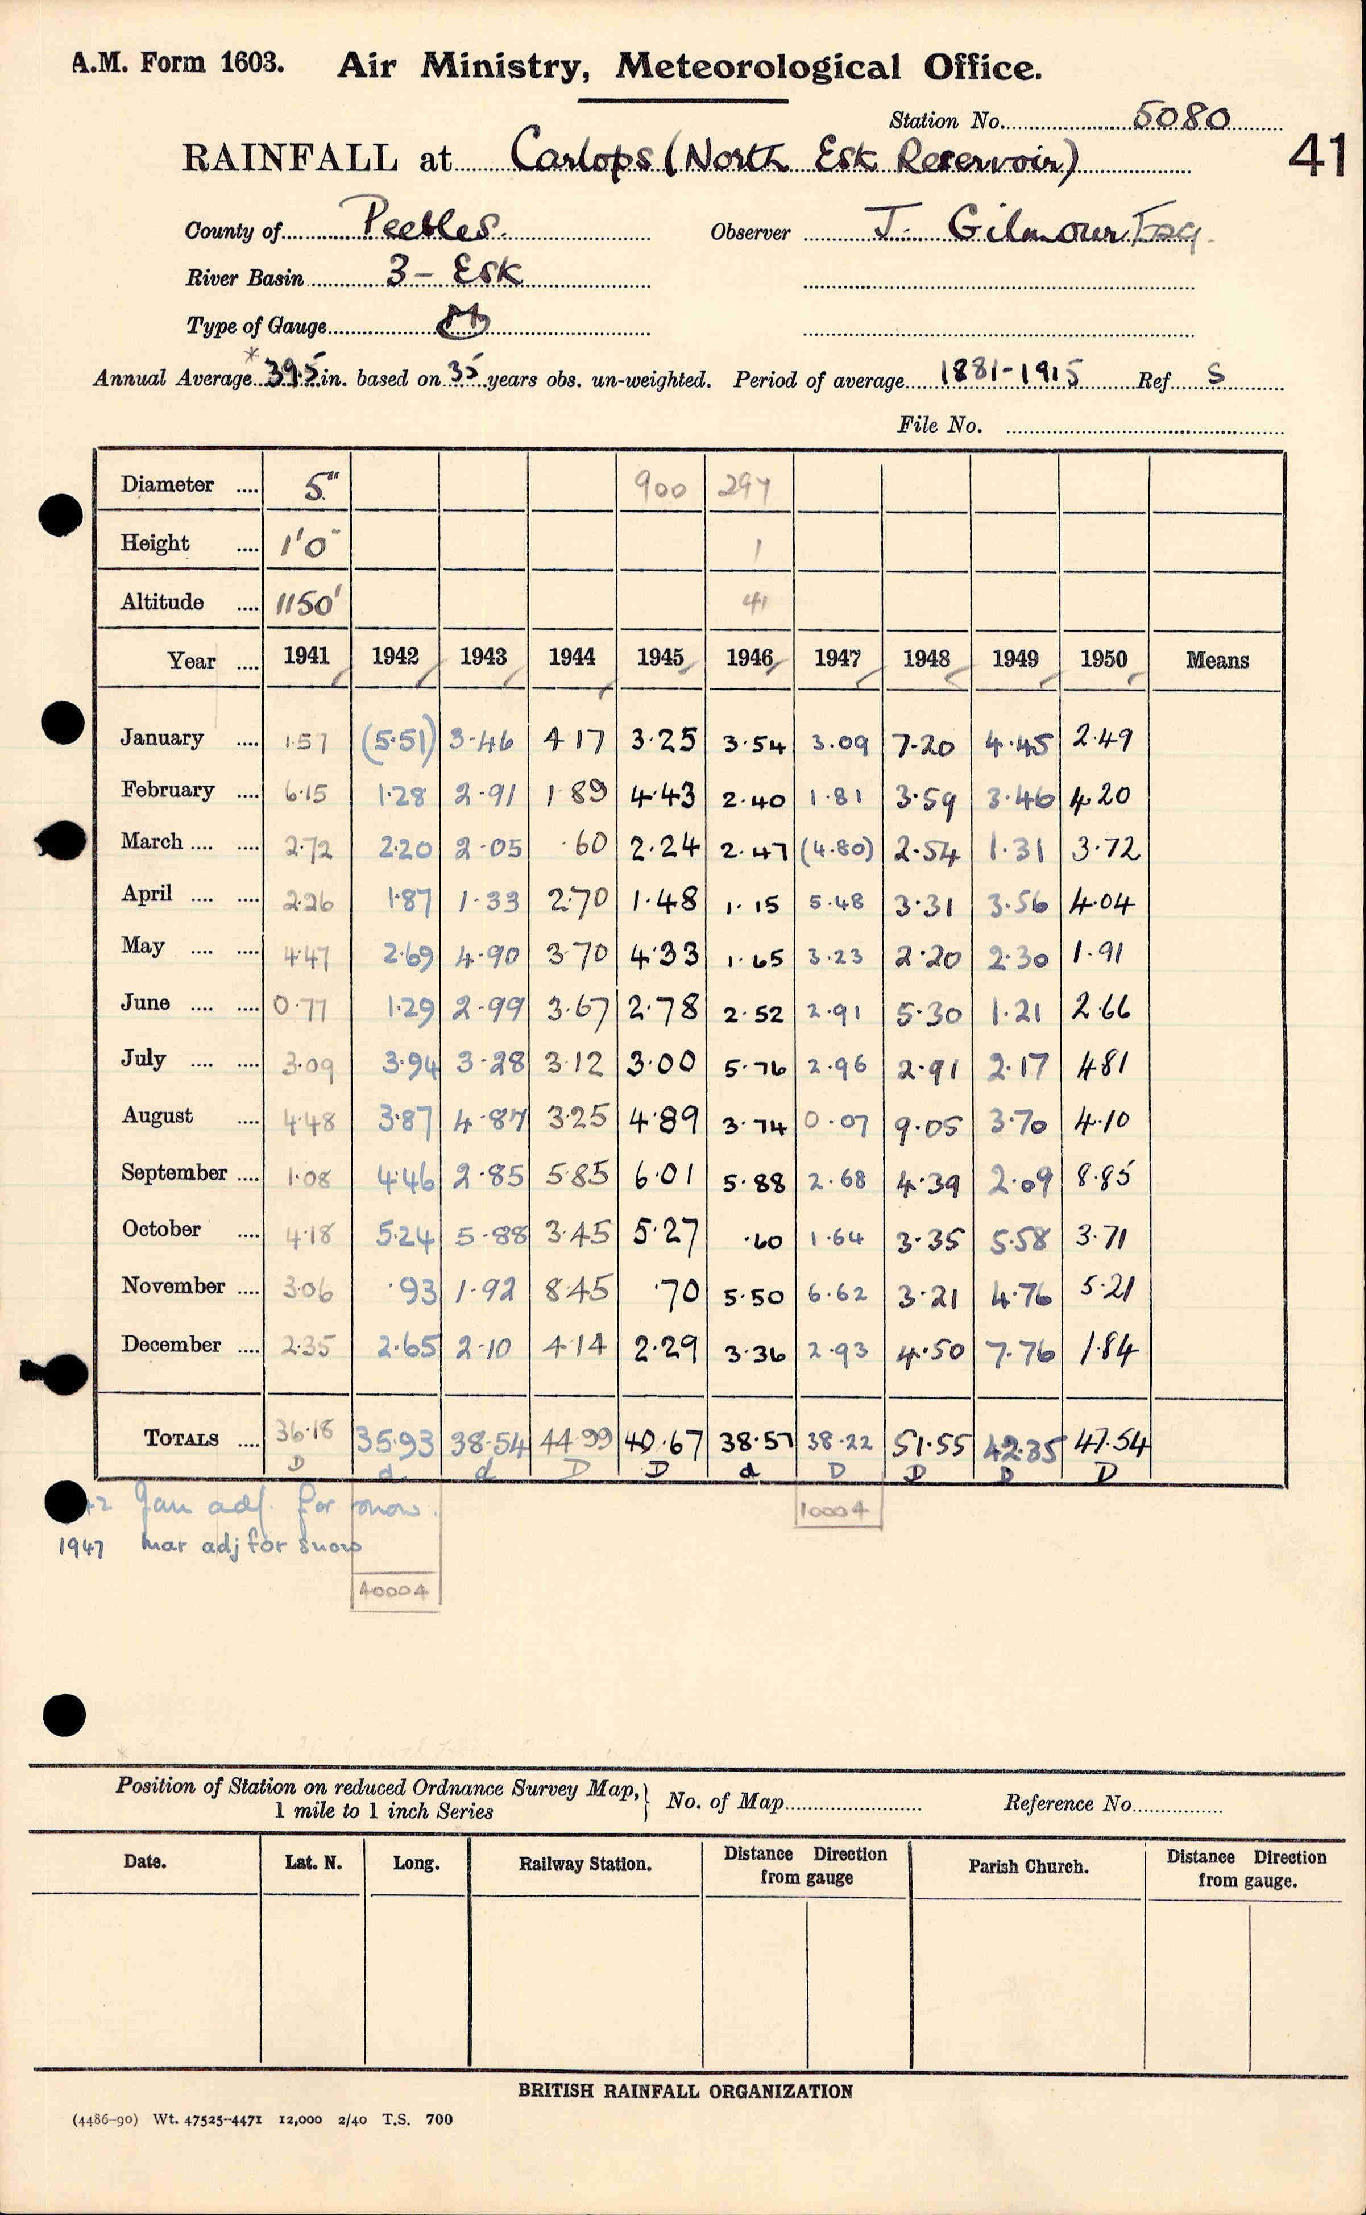 A.M. Form 1603. Air Ministry, Meteorological Office.
Station No. 5080
41
RAINFALL at Carlops (North Esk Reservoir)
County of Peebles. Observer J. Gilmour Esq.
River Basin 3 - Esk
Type of Gauge M
Annual Average *39.5 in. based on 35 years obs. un-weighted. Period of average 1881-1915 Ref S
File No.
Diameter .... 5" 900 297
Height .... 1'0" 1
Altitude .... 1150' 41
Year .... 1941 1942 1943 1944 1945 1946 1947 1948 1949 1950 Means
January .... 1.57 (5.51) 3.46 4 17 3.25 3.54 3.09 7.20 4.45 2.49
February .... 6.15 1.28 2.91 1.89 4.43 2.40 1.81 3.59 3.46 4.20
March .... .... 2.72 2.20 2.05 .60 2.24 2.47 (4.80) 2.54 1.31 3.72
April .... .... 2.26 1.87 1.33 2.70 1.48 1.15 5.48 3.31 3.56 4.04
May .... .... 4.47 2.69 4.90 3.70 4.33 1.65 3.23 2.20 2.30 1.91
June .... .... 0.77 1.29 2.99 3.67 2.78 2.52 2.91 5.30 1.21 2.66
July .... .... 3.09 3.94 3.28 3.12 3.00 5.76 2.96 2.91 2.17 4.81
August .... 4.48 3.87 4.87 3.25 4.89 3.74 0.07 9.05 3.70 4.10
September .... 1.08 4.46 2.85 5.85 6.01 5.88 2.68 4.39 2.09 8.85
October .... 4.18 5.24 5.88 3.45 5.27 .60 1.64 3.35 5.58 3.71
November .... 3.06 .93 1.92 8.45 .70 5.50 6.62 3.21 4.76 5.21
December .... 2.35 2.65 2.10 4.14 2.29 3.36 2.93 4.50 7.76 1.84
TOTALS .... 36.18 35.93 38.54 44.99 40.67 38.57 38.22 51.55 42.35 47.54
D d d D D d D D D D
42 Jan adj. for snow. 10004
1947 Mar adj for snow
40004
Position of Station on reduced Ordnance Survey Map, } No. of Map Reference No.
1 mile to 1 inch Series
Date. Lat. N. Long. Railway Station. Distance Direction from gauge Parish Church. Distance Direction from gauge.
BRITISH RAINFALL ORGANIZATION
(4486-90) Wt. 47525-4471 12,000 2/40 T.S. 700